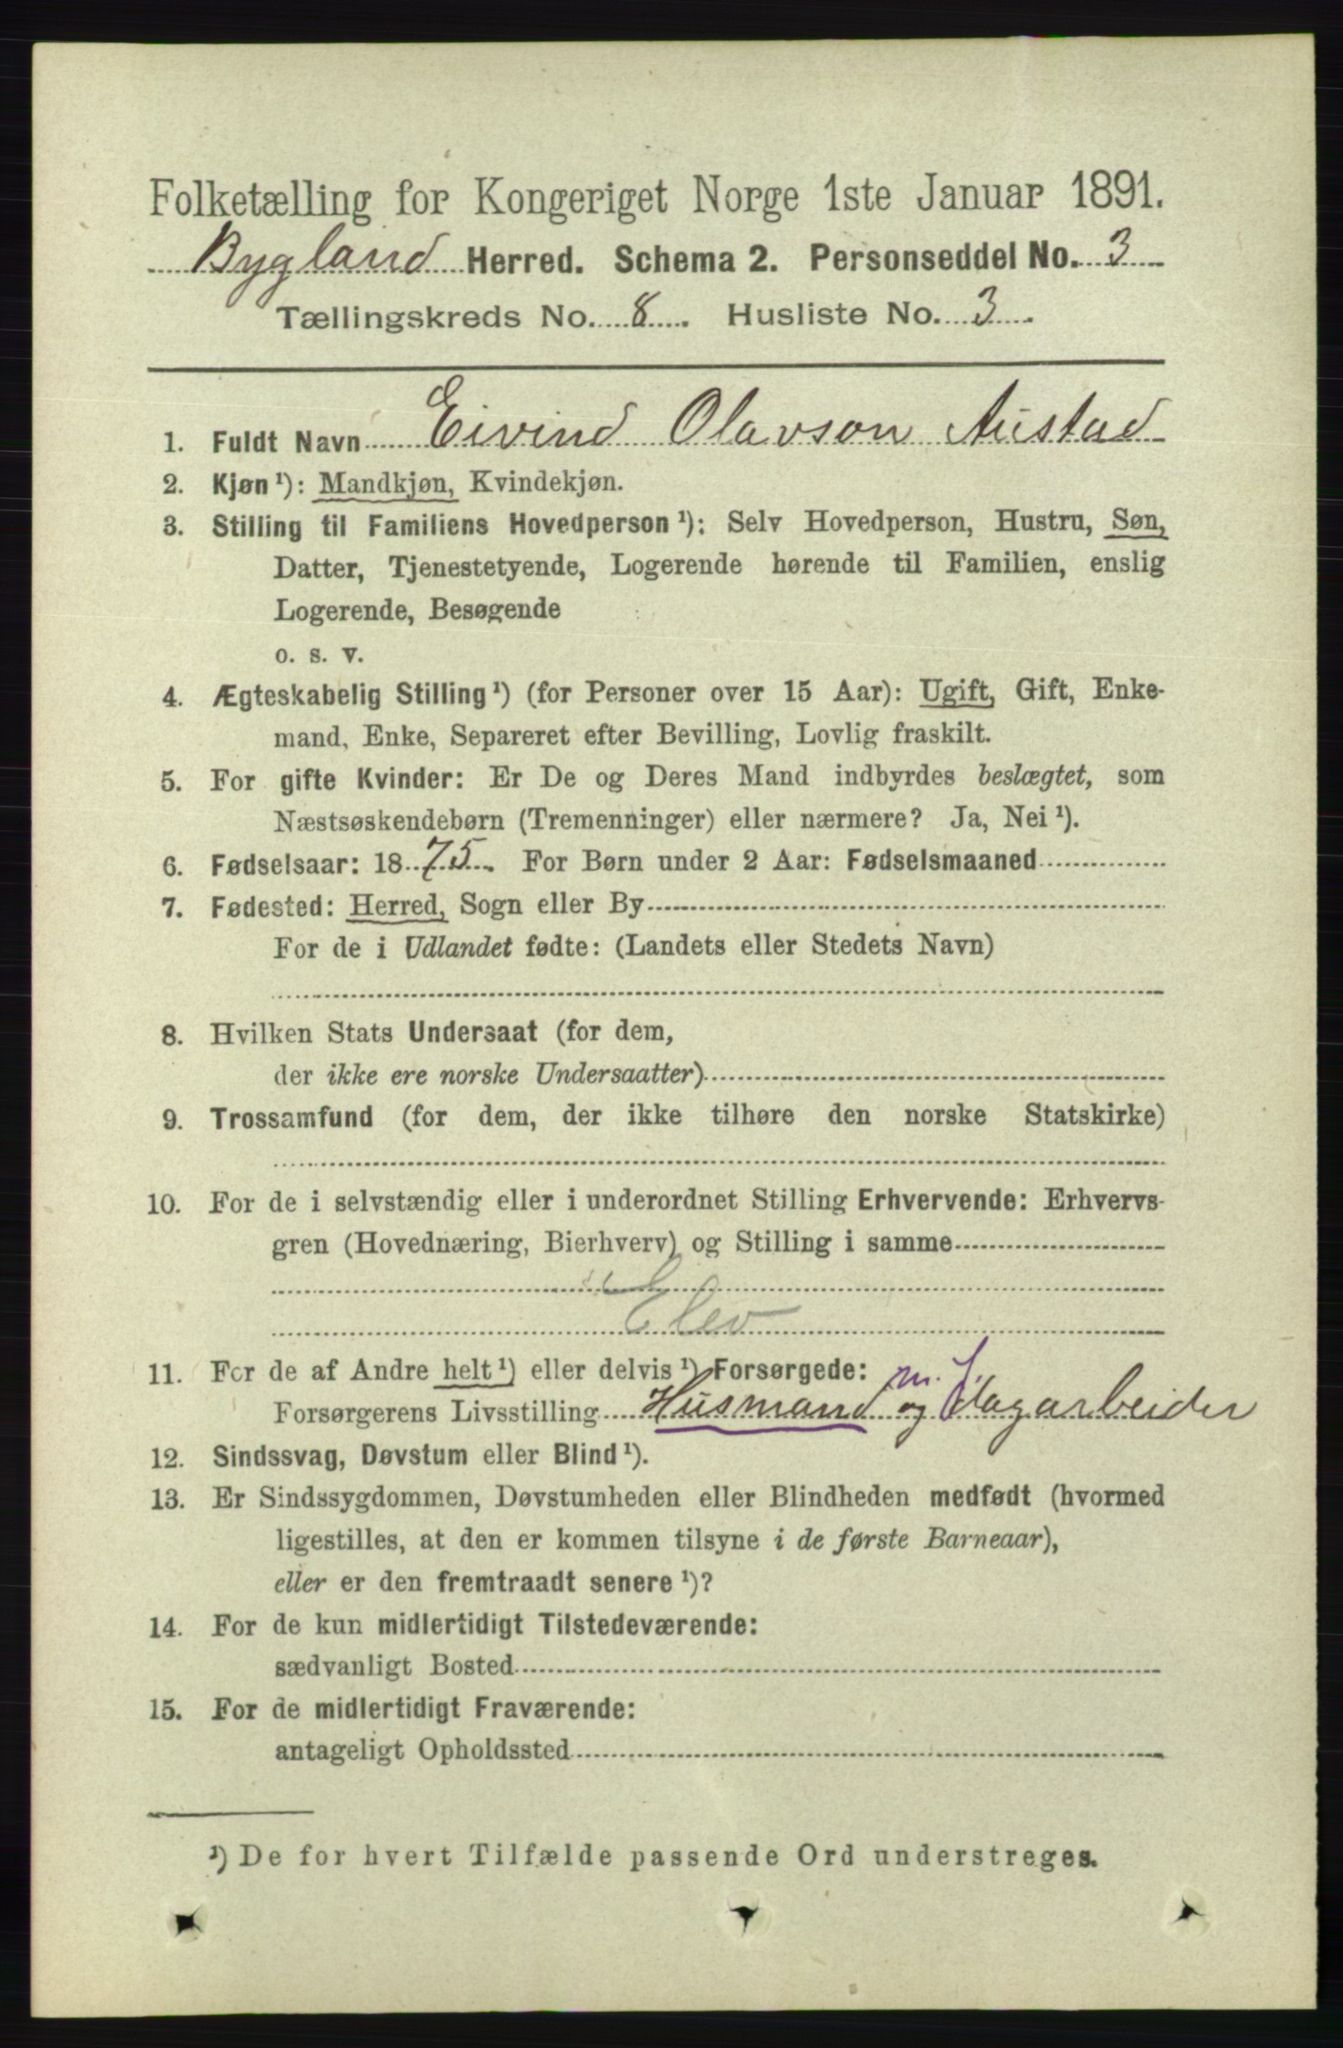 Folketælling for Kongeriget Norge 1ste Januar 1891.
Bygland Herred. Schema 2. Personseddel No. 3
Tællingskreds No. 8. Husliste No. 3.
1. Fuldt Navn Eivind Olavson Austad
2. Kjøn ¹): Mandkjøn, Kvindekjøn.
3. Stilling til Familiens Hovedperson ¹): Selv Hovedperson, Hustru, Søn,
Datter, Tjenestetyende, Logerende hørende til Familien, enslig
Logerende, Besøgende
o. s. v.
4. Ægteskabelig Stilling ¹) (for Personer over 15 Aar): Ugift, Gift, Enke-
mand, Enke, Separeret efter Bevilling, Lovlig fraskilt.
5. For gifte Kvinder: Er De og Deres Mand indbyrdes beslægtet, som
Næstsøskendebørn (Tremenninger) eller nærmere? Ja, Nei ¹).
6. Fødselsaar: 1875. For Børn under 2 Aar: Fødselsmaaned
7. Fødested: Herred, Sogn eller By
For de i Udlandet fødte: (Landets eller Stedets Navn)
8. Hvilken Stats Undersaat (for dem,
der ikke ere norske Undersaatter)
9. Trossamfund (for dem, der ikke tilhøre den norske Statskirke)
10. For de i selvstændig eller i underordnet Stilling Erhvervende: Erhvervs-
gren (Hovednæring, Bierhverv) og Stilling i samme
Elev
11. For de af Andre helt ¹) eller delvis ¹) Forsørgede:
Forsørgerens Livsstilling Husmand m. J. og dagarbeider
12. Sindssvag, Døvstum eller Blind ¹).
13. Er Sindssygdommen, Døvstumheden eller Blindheden medfødt (hvormed
ligestilles, at den er kommen tilsyne i de første Barneaar),
eller er den fremtraadt senere ¹)?
14. For de kun midlertidigt Tilstedeværende:
sædvanligt Bosted
15. For de midlertidigt Fraværende:
antageligt Opholdssted
¹) De for hvert Tilfælde passende Ord understreges.